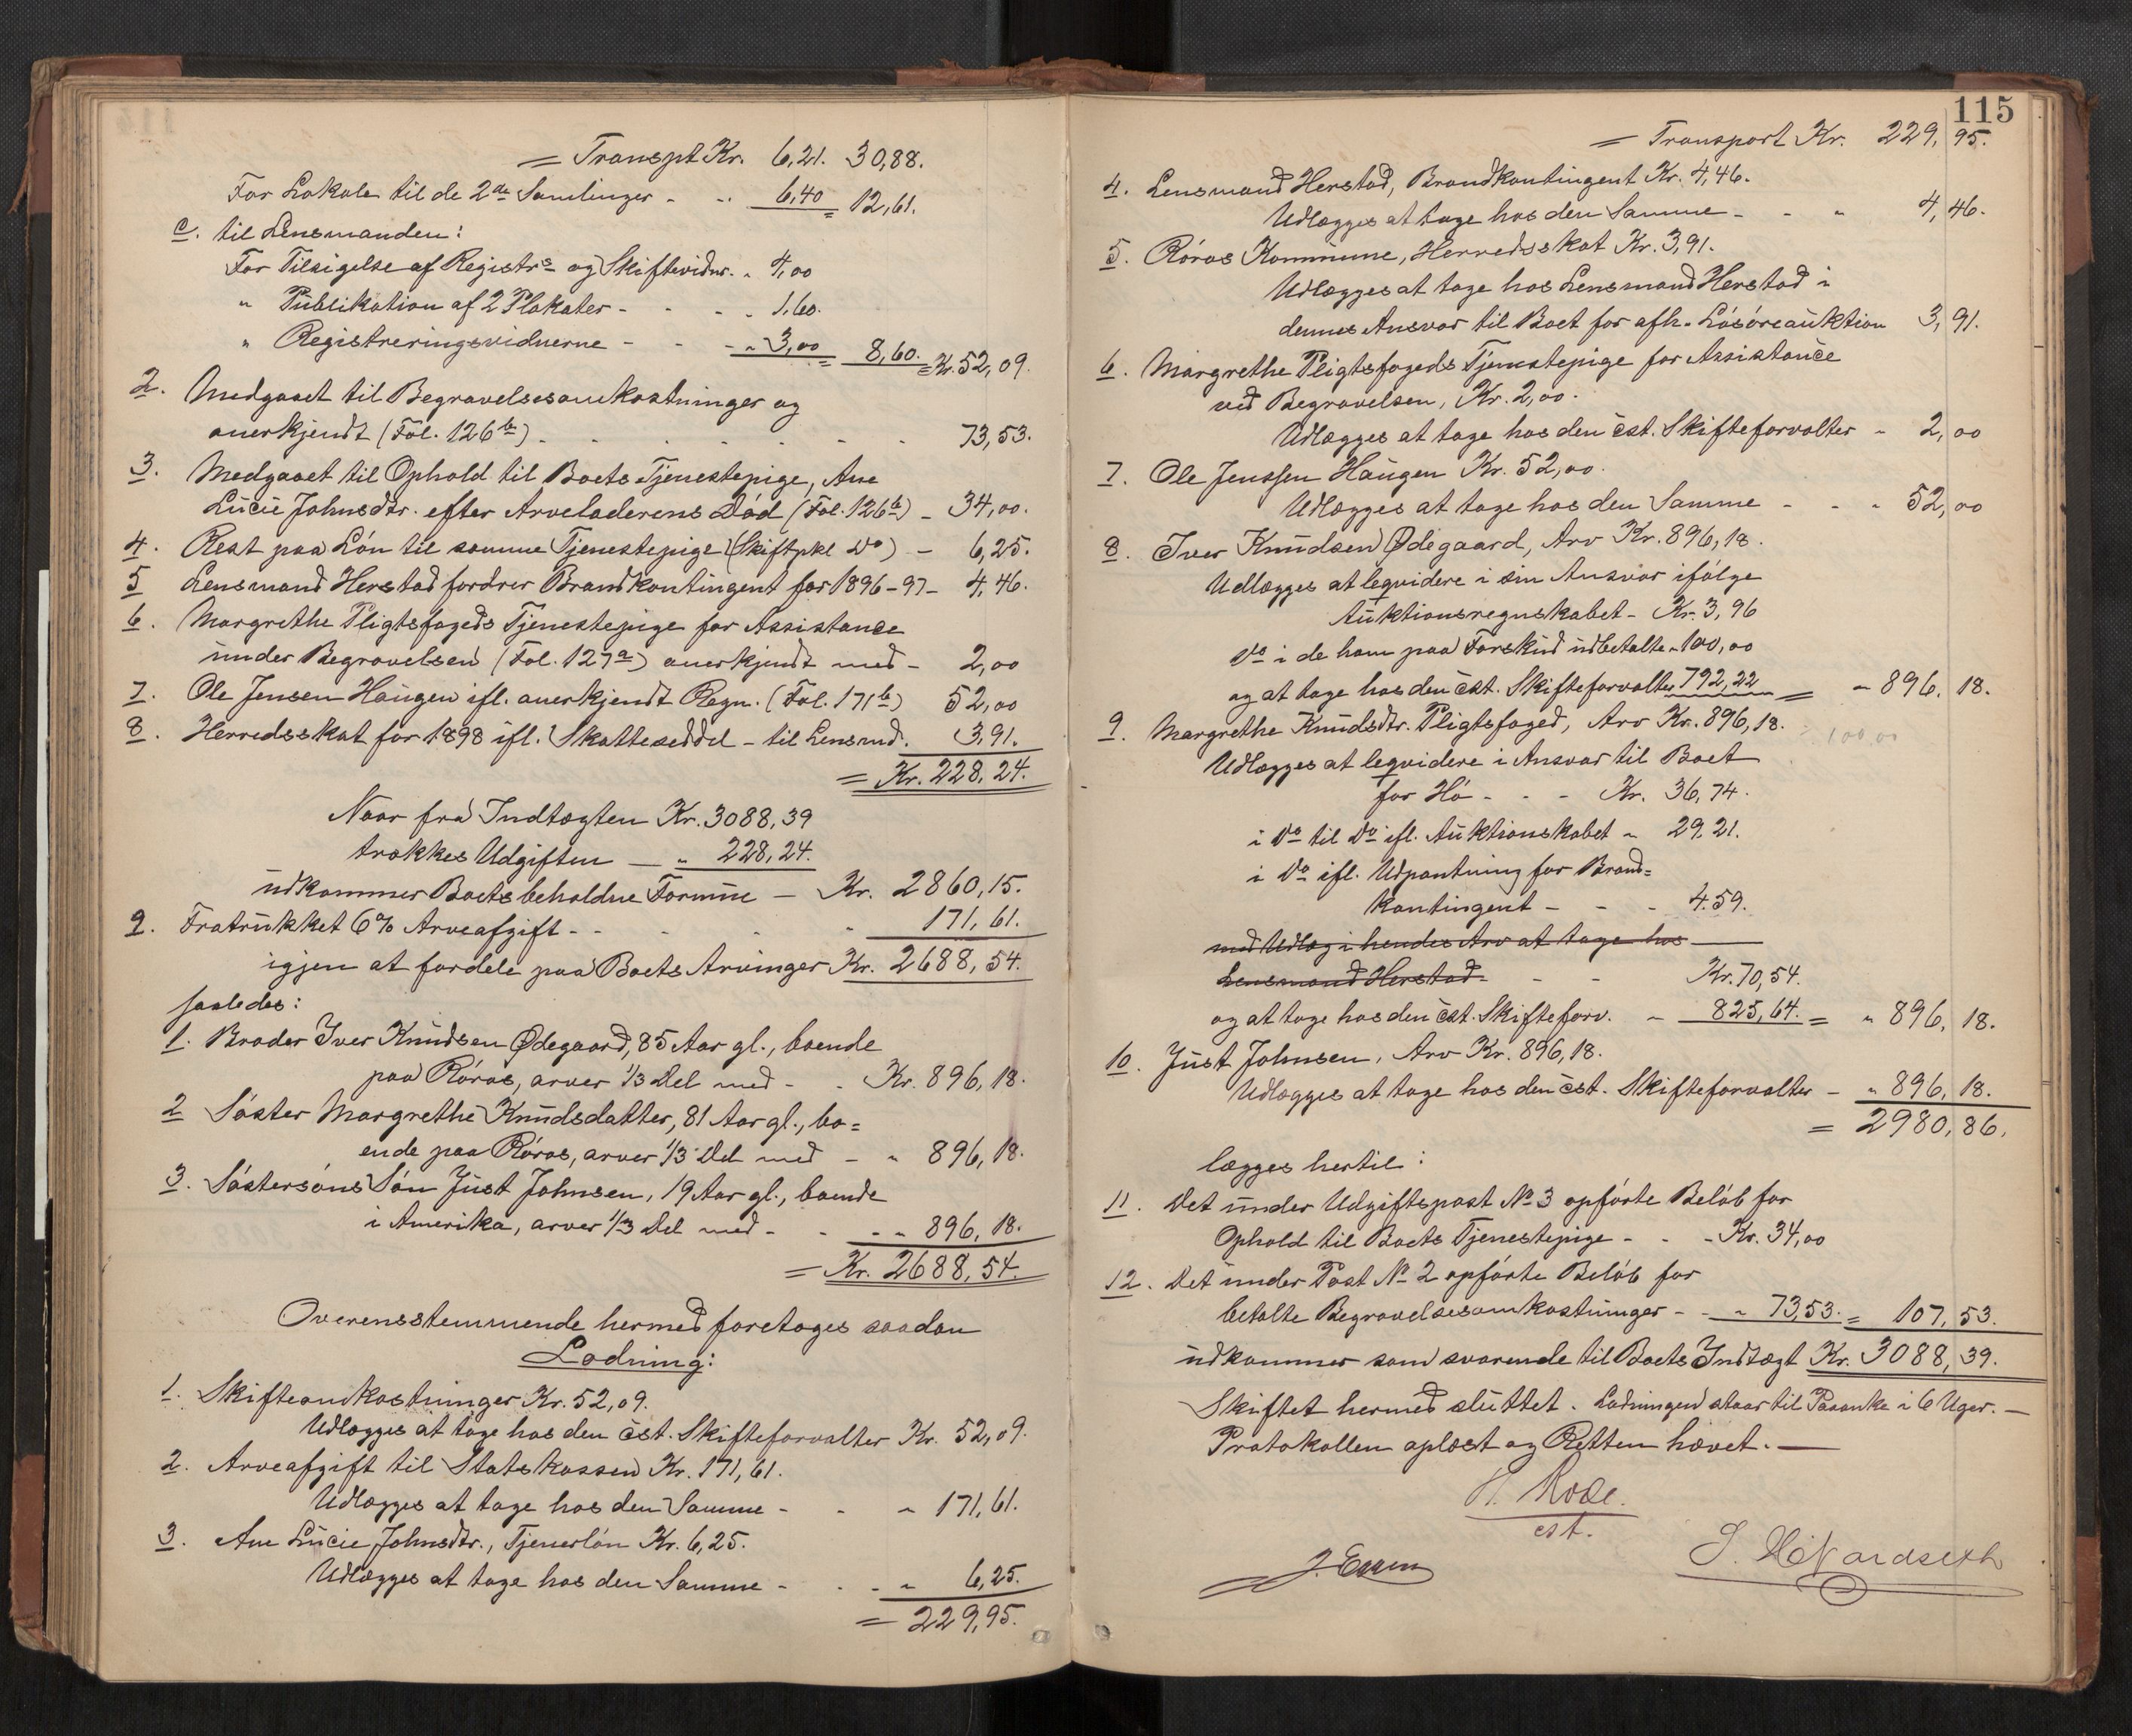 = Transpt Kr. 6,21. 30,88.
For Lokale til de 2de Samlinger - - 6,40 = 12,61.
c. til Lensmanden:
For Tilsigelse af Registrs- og Skiftevidnr. " 4,00
" Publikation af 2 Plakater - - - - 1,60.
" Registreringsvidnerne - - - " 3,00 = 8,60. = Kr. 52,09.
2. Medgaaet til Begravelsesomkostninger og
anerkjendt (Fol. 126b) - - - - - - - 73,53.
3. Medgaaet til Ophold til Boets Tjenestepige, Ane
Lucie Johnsdtr. efter Arveladerens Død (Fol. 126b) - 34,00.
4. Rest paa Løn til samme Tjenestepige (Skiftpkl Do) - 6,25.
5 Lensmand Herstad fordrer Brandkontingent for 1896-97 - 4,46.
6. Margrethe Pligtsfogeds Tjenestepige for Assistance
under Begravelsen (Fol. 127a) anerkjendt med - 2,00
7. Ole Jensen Haugen ifl. anerkjendt Regn. (Fol. 171b) 52,00
8. Herredsskat for 1898 ifl. Skatteseddel - til Lensmd. 3,91.
= Kr. 228,24.
Naar fra Indtægten Kr. 3088,39
trækkes Udgiften — " 228,24.
udkommer Boets beholdne Formue — Kr. 2860,15.
9. Fratrukket 6% Arveafgift - - - - " 171,61.
igjen at fordele paa Boets Arvinger Kr. 2688,54.
saaledes:
1. Broder Iver Knudsen Ødegaard, 85 Aar gl., boende
paa Røros, arver 1/3 Del med - - Kr. 896,18.
2 Søster Margrethe Knudsdatter, 81 Aar gl., bo=
ende paa Røros, arver 1/3 Del med - " 896,18.
3. Søstersøns Søn Just Johnsen, 19 Aar gl., boende
i Amerika, arver 1/3 Del med - - - " 896,18.
= Kr. 2688,54.
Overensstemmende hermed foretages saadan
Lodning:
1. Skifteomkostninger Kr. 52,09.
Udlægges at tage hos den cst. Skifteforvalter Kr. 52,09.
2. Arveafgift til Statskassen Kr. 171,61.
Udlægges at tage hos den Samme - - " 171,61.
3. Ane Lucie Johnsdtr., Tjenerløn Kr. 6,25.
Udlægges at tage hos den Samme - - - " 6,25.
= 229,95.
115
= Transport Kr. 229,95.
4. Lensmand Herstad, Brandkontingent Kr. 4,46.
Udlægges at tage hos den Samme - - " 4,46.
5. Røros Kommune, Herredsskat Kr. 3,91.
Udlægges at tage hos Lensmand Herstad i
dennes Ansvar til Boet for afh. Løsøreauktion 3,91.
6. Margrethe Pligtsfogeds Tjenestepige for Assistance
ved Begravelsen, Kr. 2,00.
Udlægges at tage hos den cst. Skifteforvalter " 2,00
7. Ole Jenssen Haugen Kr. 52,00.
Udlægges at tage hos den Samme - - " 52,00
8. Iver Knudsen Ødegaard, Arv Kr. 896,18.
Udlægges at leqvidere i sin Ansvar ifølge
Auktionsregnskabet - Kr. 3,96
Do i de ham paa Forskud udbetalte " 100,00
og at tage hos den cst. Skifteforvalter 792,22 = " 896,18.
9. Margrethe Knudsdtr. Pligtsfoged, Arv Kr. 896,18.
100,00
Udlægges at leqvidere i Ansvar til Boet
for Hø - - - Kr. 36,74.
i Do til Do ifl. Auktionskabet " 29,21.
i Do ifl. Udpantning for Brand=
kontingent - - - 4.59.
med Udlæg i hendes Arv at tage hos
Lensmand Herstad - - - Kr. 70,54.
og at tage hos den cst. Skifteforv. - 825,64. = " 896,18.
10. Just Johnsen, Arv Kr. 896,18.
Udlægges at tage hos den cst. Skifteforvalter - " 896,18.
= 2980,86.
lægges hertil:
11. Det under Udgiftspost No 3 opførte Beløb for
Ophold til Boets Tjenestepige - - - Kr. 34,00
12. Det under Post No 2 opførte Beløb for
betalte Begravelsesomkostninger - - " 73,53. = 107,53.
udkommer som svarende til Boets Indtægt Kr. 3088,39.
Skiftet hermed sluttet. Lodningen staar til Paaanke i 6 Uger. —
Protokollen oplæst og Retten hævet. —
H. Rode.
cst.